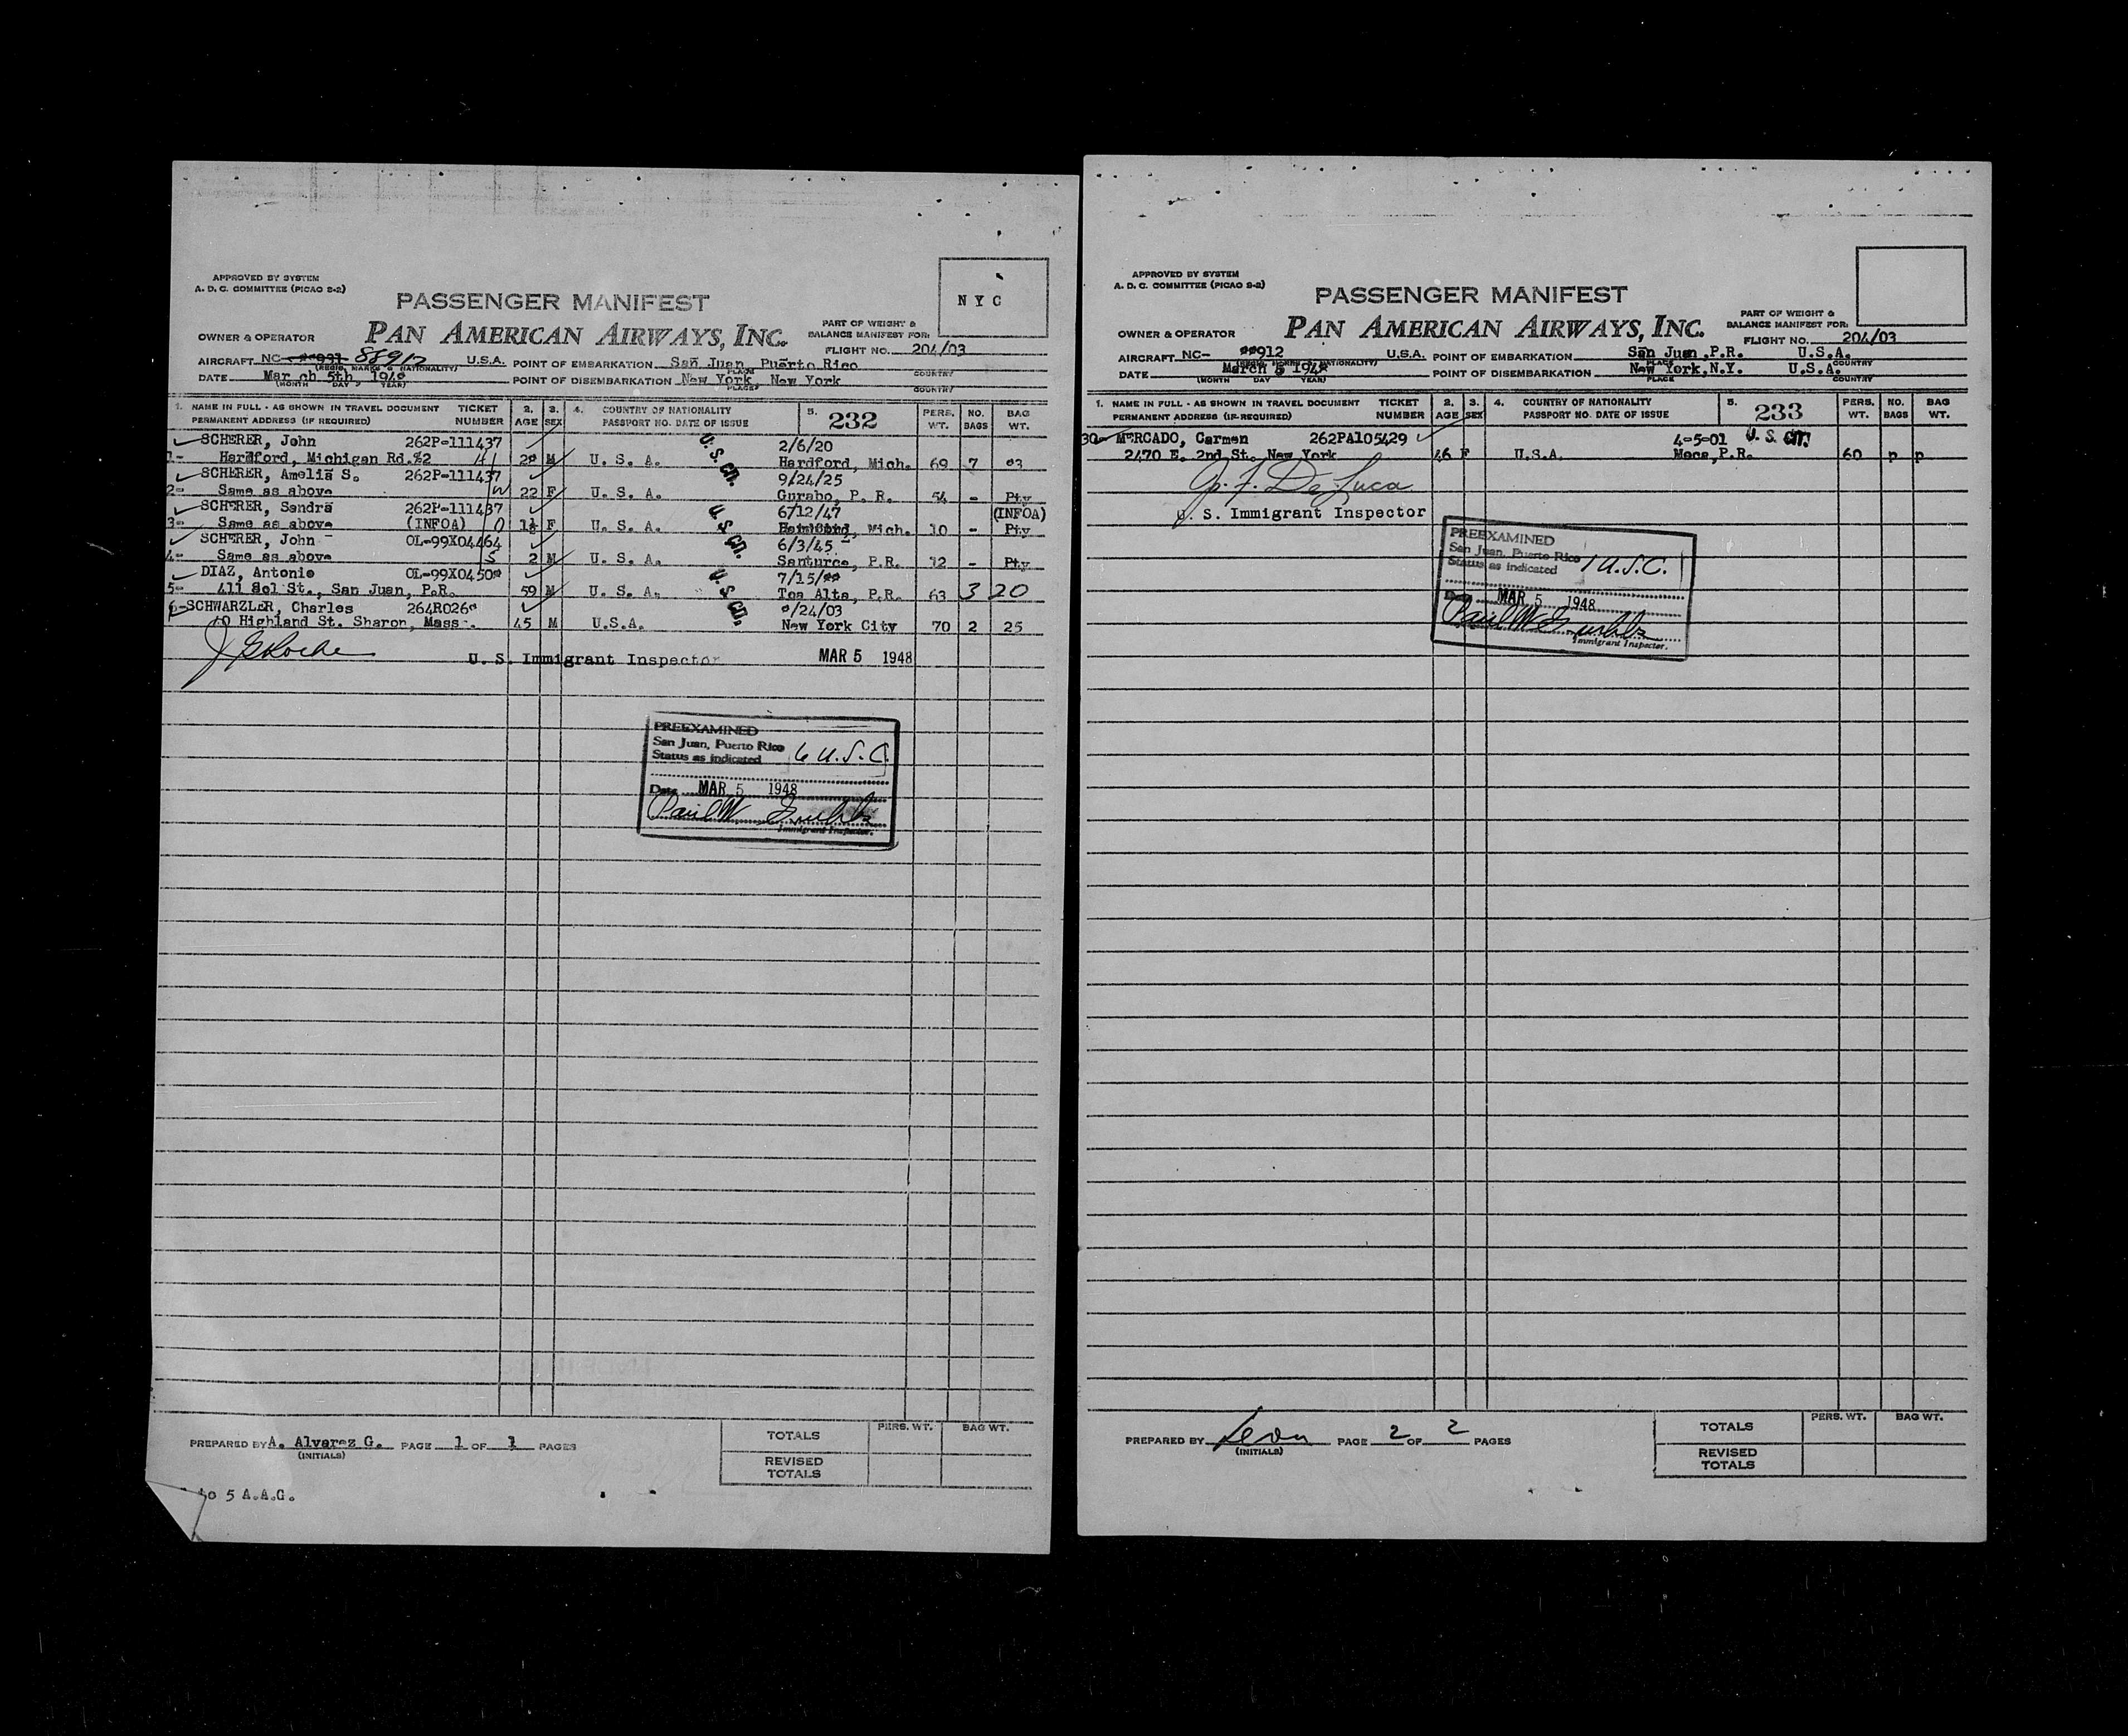 APPROVED BY SYSTEM
A. D. C. COMMITTEE (PICAO S-2)
NYC
PASSENGER MANIFEST
OWNER & OPERATOR PAN AMERICAN AIRWAYS, INC. PART OF WEIGHT & BALANCE MANIFEST FOR:
FLIGHT NO. 204/03
AIRCRAFT NC- 88912 U.S.A. POINT OF EMBARKATION San Juan, Puerto Rico
(REGIS. MARKS & NATIONALITY) PLACE COUNTRY
DATE March 5th, 1948 POINT OF DISEMBARKATION New York, New York
(MONTH DAY YEAR) PLACE COUNTRY
1. NAME IN FULL - AS SHOWN IN TRAVEL DOCUMENT TICKET NUMBER 2. AGE 3. SEX 4. COUNTRY OF NATIONALITY 5. 232 PERS. WT. NO. BAGS BAG WT.
PERMANENT ADDRESS (IF REQUIRED) PASSPORT NO. DATE OF ISSUE
SCHERER, John 262P-111437 2/6/20
1- Hardford, Michigan Rd.#2 28 M U. S. A. U. S. CIT. Hardford, Mich. 69 7 83
SCHERER, Amelia S. 262P-111437 9/24/25
2- Same as above 22 F U. S. A. Gurabo, P. R. 54 - Pty
SCHERER, Sandra 262P-111437 6/12/47 (INFOA)
3- Same as above (INFOA) F U. S. A. U. S. CIT. Mich. 10 - Pty
SCHERER, John OL-99X04464 6/3/45
4- Same as above 2 M U. S. A. Santurce, P.R. 12 - Pty
DIAZ, Antonio OL-99X04508 7/15/88
5- 411 Sol St., San Juan, P.R. 59 M U. S. A. U. S. CIT. Toa Alta, P.R. 63 3 20
6- SCHWARZLER, Charles 264R0268 8/24/03
40 Highland St. Sharon, Mass. 45 M U.S.A. New York City 70 2 25
U. S. Immigrant Inspector MAR 5 1948
PREEXAMINED
San Juan, Puerto Rico
Status as indicated 6 U.S.C.
Date MAR 5 1948
Immigrant Inspector.
PREPARED BY A. Alvarez G. PAGE 1 OF 1 PAGES
(INITIALS)
TOTALS PERS. WT. BAG WT.
REVISED TOTALS
to 5 A.A.G.
APPROVED BY SYSTEM
A. D. C. COMMITTEE (PICAO S-2)
PASSENGER MANIFEST
OWNER & OPERATOR PAN AMERICAN AIRWAYS, INC. PART OF WEIGHT & BALANCE MANIFEST FOR:
FLIGHT NO. 204/03
AIRCRAFT NC- 88912 U.S.A. POINT OF EMBARKATION San Juan, P.R. U.S.A.
(REGIS. MARKS & NATIONALITY) PLACE COUNTRY
DATE March 5 1948 POINT OF DISEMBARKATION New York, N.Y. U.S.A.
(MONTH DAY YEAR) PLACE COUNTRY
1. NAME IN FULL - AS SHOWN IN TRAVEL DOCUMENT TICKET NUMBER 2. AGE 3. SEX 4. COUNTRY OF NATIONALITY 5. 233 PERS. WT. NO. BAGS BAG WT.
PERMANENT ADDRESS (IF REQUIRED) PASSPORT NO. DATE OF ISSUE
30- MERCADO, Carmen 262PA105429 4-5-01 U. S. CIT.
2470 E. 2nd St. New York 46 F U.S.A. Moca, P.R. 60 p p
G. F. De Luca
U. S. Immigrant Inspector
PREEXAMINED
San Juan, Puerto Rico
Status as indicated 1 U.S.C.
Date MAR 5 1948
Immigrant Inspector.
PREPARED BY Leon PAGE 2 OF 2 PAGES
(INITIALS)
TOTALS PERS. WT. BAG WT.
REVISED TOTALS